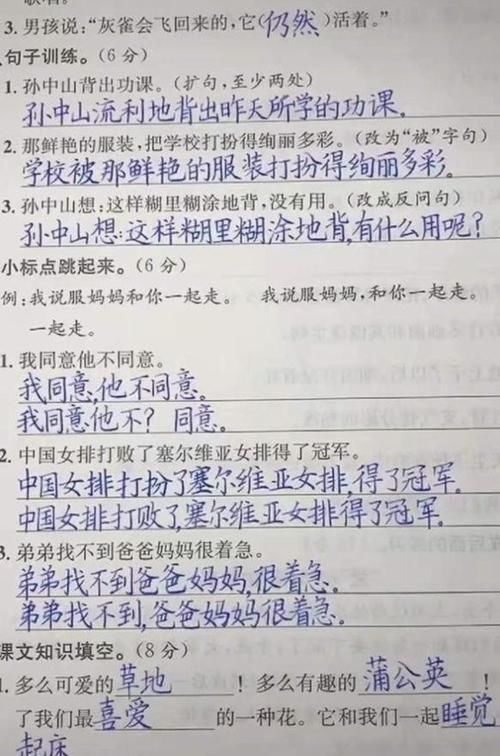 3. 男孩说:“灰雀会飞回来的,它(仍然)活着。”
句子训练。(6分)
1. 孙中山背出功课。(扩句,至少两处)
孙中山流利地背出昨天所学的功课.
2. 那鲜艳的服装,把学校打扮得绚丽多彩。(改为“被”字句)
学校被那鲜艳的服装打扮得绚丽多彩.
3. 孙中山想:这样糊里糊涂地背,没有用。(改成反问句)
孙中山想:这样糊里糊涂地背,有什么用呢?
小标点跳起来。(6分)
例:我说服妈妈和你一起走。 我说服妈妈,和你一起走。
一起走。
1. 我同意他不同意。
我同意,他不同意.
我同意他不? 同意.
2. 中国女排打败了塞尔维亚女排得了冠军。
中国女排打扮了塞尔维亚女排,得了冠军.
中国女排打败了,塞尔维亚女排得了冠军.
3. 弟弟找不到爸爸妈妈很着急。
弟弟找不到爸爸妈妈,很着急.
弟弟找不到,爸爸妈妈很着急.
课文知识填空。(8分)
1. 多么可爱的草地!多么有趣的蒲公英!
了我们最喜爱的一种花。它和我们一起睡觉
起床